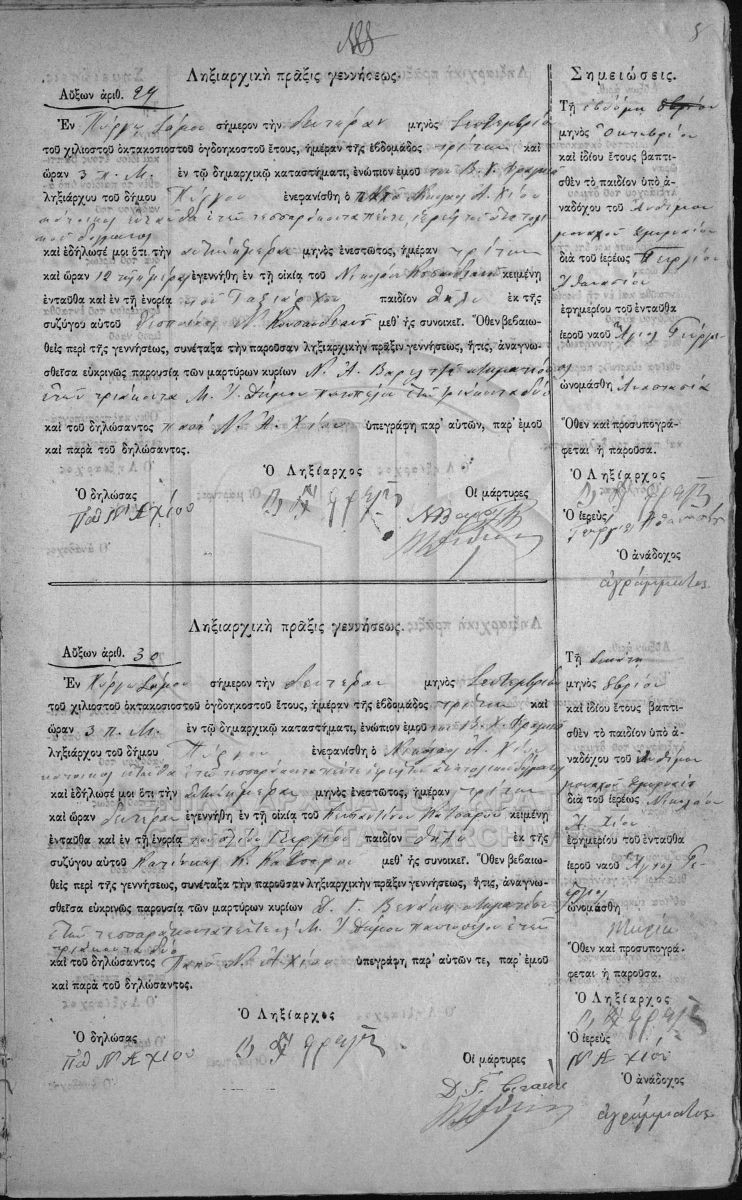 5
Ληξιαρχικὴ πρᾶξις γεννήσεως.
Αὔξων ἀριθ. 29
Ἐν Πύργῳ Σάμου σήμερον τὴν Δευτέραν μηνὸς Σεπτεμβρίου
τοῦ χιλιοστοῦ ὀκτακοσιοστοῦ ὀγδοηκοστοῦ ἔτους, ἡμέραν τῆς ἑβδομάδος τρίτην καὶ
ὥραν 3 π. Μ. ἐν τῷ δημαρχικῷ καταστήματι, ἐνώπιον ἐμοῦ τοῦ Β. Χ.
ληξιάρχου τοῦ δήμου Πύργου ἐνεφανίσθη ὁ παπᾶ Νικόλαος Α. Χίου
κάτοικος ἐνταῦθα ἐτῶν τεσσαράκοντα πέντε ἱερεὺς
καὶ ἐδήλωσέ μοι ὅτι τὴν αὐτὴν ἡμέραν μηνὸς ἐνεστῶτος, ἡμέραν τρίτην
καὶ ὥραν 12 τὴν ἡμέραν ἐγεννήθη ἐν τῇ οἰκίᾳ τοῦ Νικολάου κειμένῃ
ἐνταῦθα καὶ ἐν τῇ ἐνορίᾳ τοῦ Ταξιάρχου παιδίον θῆλυ ἐκ τῆς
συζύγου αὐτοῦ Δεσποίνης Ν. μεθ' ἧς συνοικεῖ. Ὅθεν βεβαιω-
θεὶς περὶ τῆς γεννήσεως, συνέταξα τὴν παροῦσαν ληξιαρχικὴν πρᾶξιν γεννήσεως, ἥτις, ἀναγνω-
σθεῖσα εὐκρινῶς παρουσίᾳ τῶν μαρτύρων κυρίων Ν. Α. κτηματίου
ἐτῶν τριάκοντα Μ. Ι. Δήμου παντοπώλου ἐτῶν τριάκοντα δύο
καὶ τοῦ δηλώσαντος παπᾶ Ν. Α. Χίου ὑπεγράφη παρ' αὐτῶν, παρ' ἐμοῦ
καὶ παρὰ τοῦ δηλώσαντος.
Ὁ Ληξίαρχος
Ὁ δηλώσας Οἱ μάρτυρες
Παπ Ν Α Χίου
Σημειώσεις.
Τῇ ἑβδόμῃ
μηνὸς Ὀκτωβρίου
καὶ ἰδίου ἔτους βαπτι-
σθὲν τὸ παιδίον ὑπὸ ἀ-
ναδόχου τοῦ Ἀνθίμου
μοναχοῦ
διὰ τοῦ ἱερέως Γεωργίου
Ἀθανασίου
ἐφημερίου τοῦ ἐνταῦθα
ἱεροῦ ναοῦ Ἅγιος Γεώργιος
ὠνομάσθη Ἀναστασία
Ὅθεν καὶ προσυπογρά-
φεται ἡ παροῦσα.
Ὁ Ληξίαρχος
Ὁ ἱερεὺς
Ὁ ἀνάδοχος
ἀγράμματος
Ληξιαρχικὴ πρᾶξις γεννήσεως.
Αὔξων ἀριθ. 30
Ἐν Πύργῳ Σάμου σήμερον τὴν Δευτέραν μηνὸς Σεπτεμβρίου
τοῦ χιλιοστοῦ ὀκτακοσιοστοῦ ὀγδοηκοστοῦ ἔτους, ἡμέραν τῆς ἑβδομάδος τρίτην καὶ
ὥραν 3 π. Μ. ἐν τῷ δημαρχικῷ καταστήματι, ἐνώπιον ἐμοῦ τοῦ Β. Χ.
ληξιάρχου τοῦ δήμου Πύργου ἐνεφανίσθη ὁ Νικόλαος Α. Χίου
κάτοικος ἐνταῦθα ἐτῶν τεσσαράκοντα πέντε ἱερεὺς
καὶ ἐδήλωσέ μοι ὅτι τὴν αὐτὴν ἡμέραν μηνὸς ἐνεστῶτος, ἡμέραν τρίτην
καὶ ὥραν δευτέραν ἐγεννήθη ἐν τῇ οἰκίᾳ τοῦ Κωσταντίνου Κάτσαρου κειμένῃ
ἐνταῦθα καὶ ἐν τῇ ἐνορίᾳ τοῦ Ἁγίου Γεωργίου παιδίον θῆλυ ἐκ τῆς
συζύγου αὐτοῦ Κατίνας Κ. Κάτσαρου μεθ' ἧς συνοικεῖ. Ὅθεν βεβαιω-
θεὶς περὶ τῆς γεννήσεως, συνέταξα τὴν παροῦσαν ληξιαρχικὴν πρᾶξιν γεννήσεως, ἥτις, ἀναγνω-
σθεῖσα εὐκρινῶς παρουσίᾳ τῶν μαρτύρων κυρίων Δ. Γ. κτηματίου
ἐτῶν τεσσαράκοντα Μ. Ι. Δήμου παντοπώλου ἐτῶν
τριάκοντα δύο
καὶ τοῦ δηλώσαντος Παπᾶ Ν. Α. Χίου ὑπεγράφη παρ' αὐτῶν τε, παρ' ἐμοῦ
καὶ παρὰ τοῦ δηλώσαντος.
Ὁ Ληξίαρχος
Ὁ δηλώσας
Παπ Ν Α Χίου
Οἱ μάρτυρες
Τῇ δεκάτῃ
μηνὸς 8βρίου
καὶ ἰδίου ἔτους βαπτι-
σθὲν τὸ παιδίον ὑπὸ ἀ-
ναδόχου τοῦ Ἀνθίμου
μοναχοῦ
διὰ τοῦ ἱερέως Νικολάου
Α. Χίου
ἐφημερίου τοῦ ἐνταῦθα
ἱεροῦ ναοῦ Ἅγιος Γε-
ώργιος
ὠνομάσθη
Μαρία
Ὅθεν καὶ προσυπογρά-
φεται ἡ παροῦσα.
Ὁ Ληξίαρχος
Ὁ ἱερεὺς
Ν Α Χίου
Ὁ ἀνάδοχος
ἀγράμματος